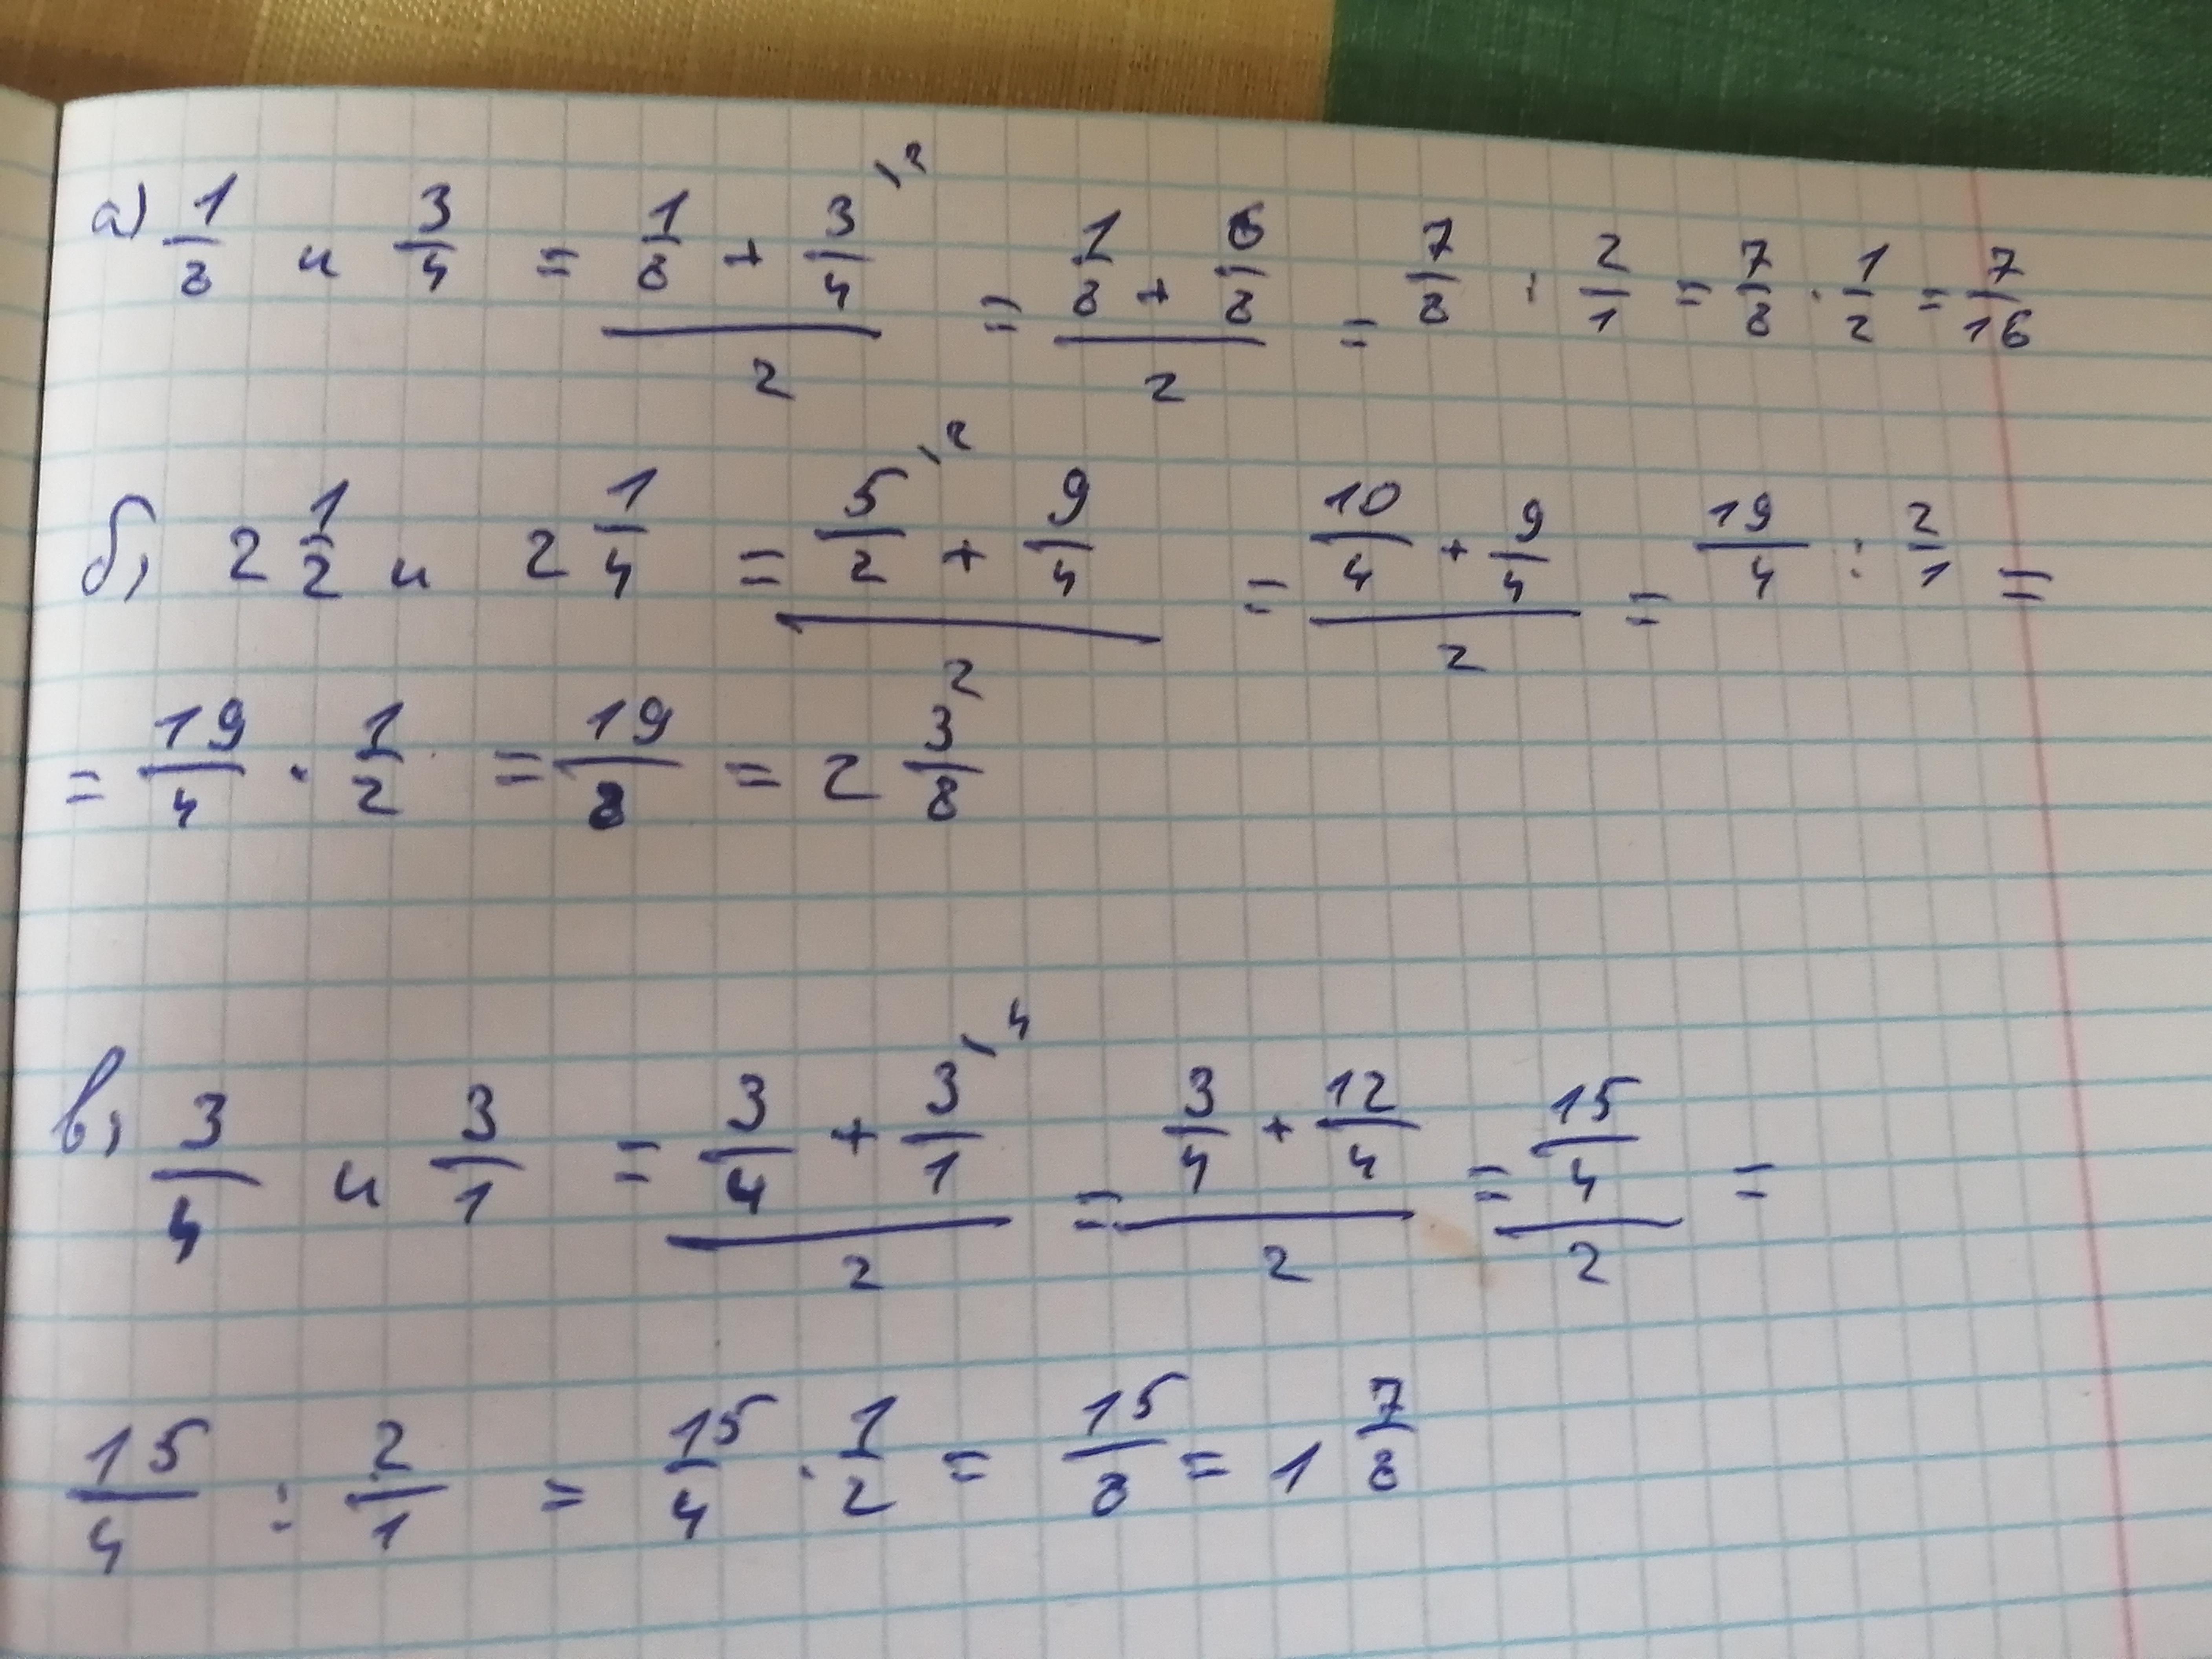 а) 1/8 и 3/4 = (1/8 + 3/4\2)/2 = (1/8 + 6/8)/2 = 7/8 : 2/1 = 7/8 · 1/2 = 7/16
б) 2 1/2 и 2 1/4 = (5/2\2 + 9/4)/2 = (10/4 + 9/4)/2 = 19/4 : 2/1 =
= 19/4 · 1/2 = 19/8 = 2 3/8
в) 3/4 и 3/1 = (3/4 + 3/1\4)/2 = (3/4 + 12/4)/2 = (15/4)/2 =
15/4 : 2/1 = 15/4 · 1/2 = 15/8 = 1 7/8